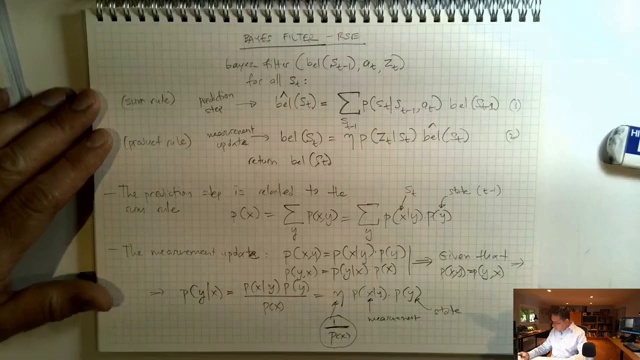 BAYES FILTER - RSE
bayes filter (bel(S_{t-1}), a_t, Z_t)
for all S_t:
(sum rule) prediction step → bel^(S_t) = Σ_{S_{t-1}} p(S_t|S_{t-1}, a_t) bel(S_{t-1}) (1)
(product rule) measurement update → bel(S_t) = η p(Z_t|S_t) bel^(S_t) (2)
return bel(S_t)
- The prediction step is related to the
sum rule p(x) = Σ_y p(x,y) = Σ_y p(x|y) p(y)
S_t state (t-1)
- The measurement update: p(x,y) = p(x|y)·p(y) ⟹ Given that ⟹
p(y,x) = p(y|x) p(x) p(x,y)=p(y,x)
⟹ p(y|x) = p(x|y) p(y) / p(x) = η p(x|y)·p(y)
measurement state
1/p(x)
HI